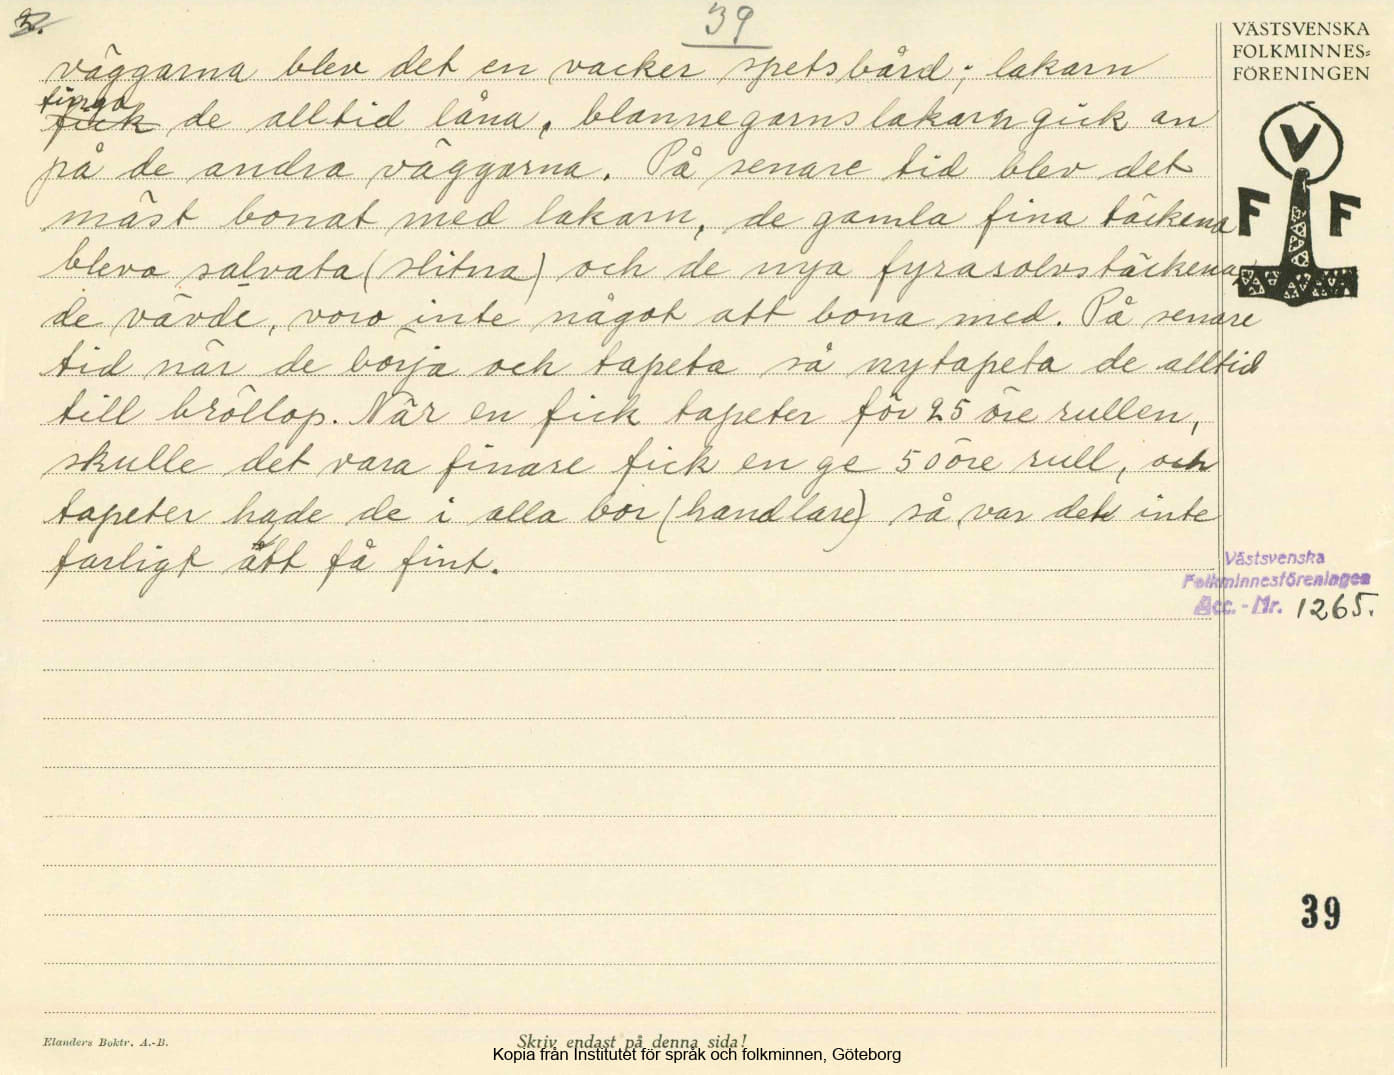 39
VÄSTSVENSKA
FOLKMINNES-
FÖRENINGEN
väggarna blev det en vacker spetsbård; lakarn
finga
fick de alltid låna, blannegarnslakarn gick an
på de andra väggarna. På senare tid blev det
mäst bonat med lakarn, de gamla fina täckena
blevo salvata (slitna) och de nya fyrasolvstäckena,
de vävde, voro inte något att bona med. På senare
tid när de börja och tapeta så nytapeta de alltid
till bröllop. När en fick tapeter för 25 öre rullen,
skulle det vara finare fick en ge 50 öre rull, och
tapeter hade de i alla bör (handlare) så var det inte
farligt att få fint.
V
F F
Västsvenska
Folkminnesföreningen
Acc. - Nr. 1265.
39
Elanders Boktr. A.-B.
Skriv endast på denna sida!
Kopia från Institutet för språk och folkminnen, Göteborg